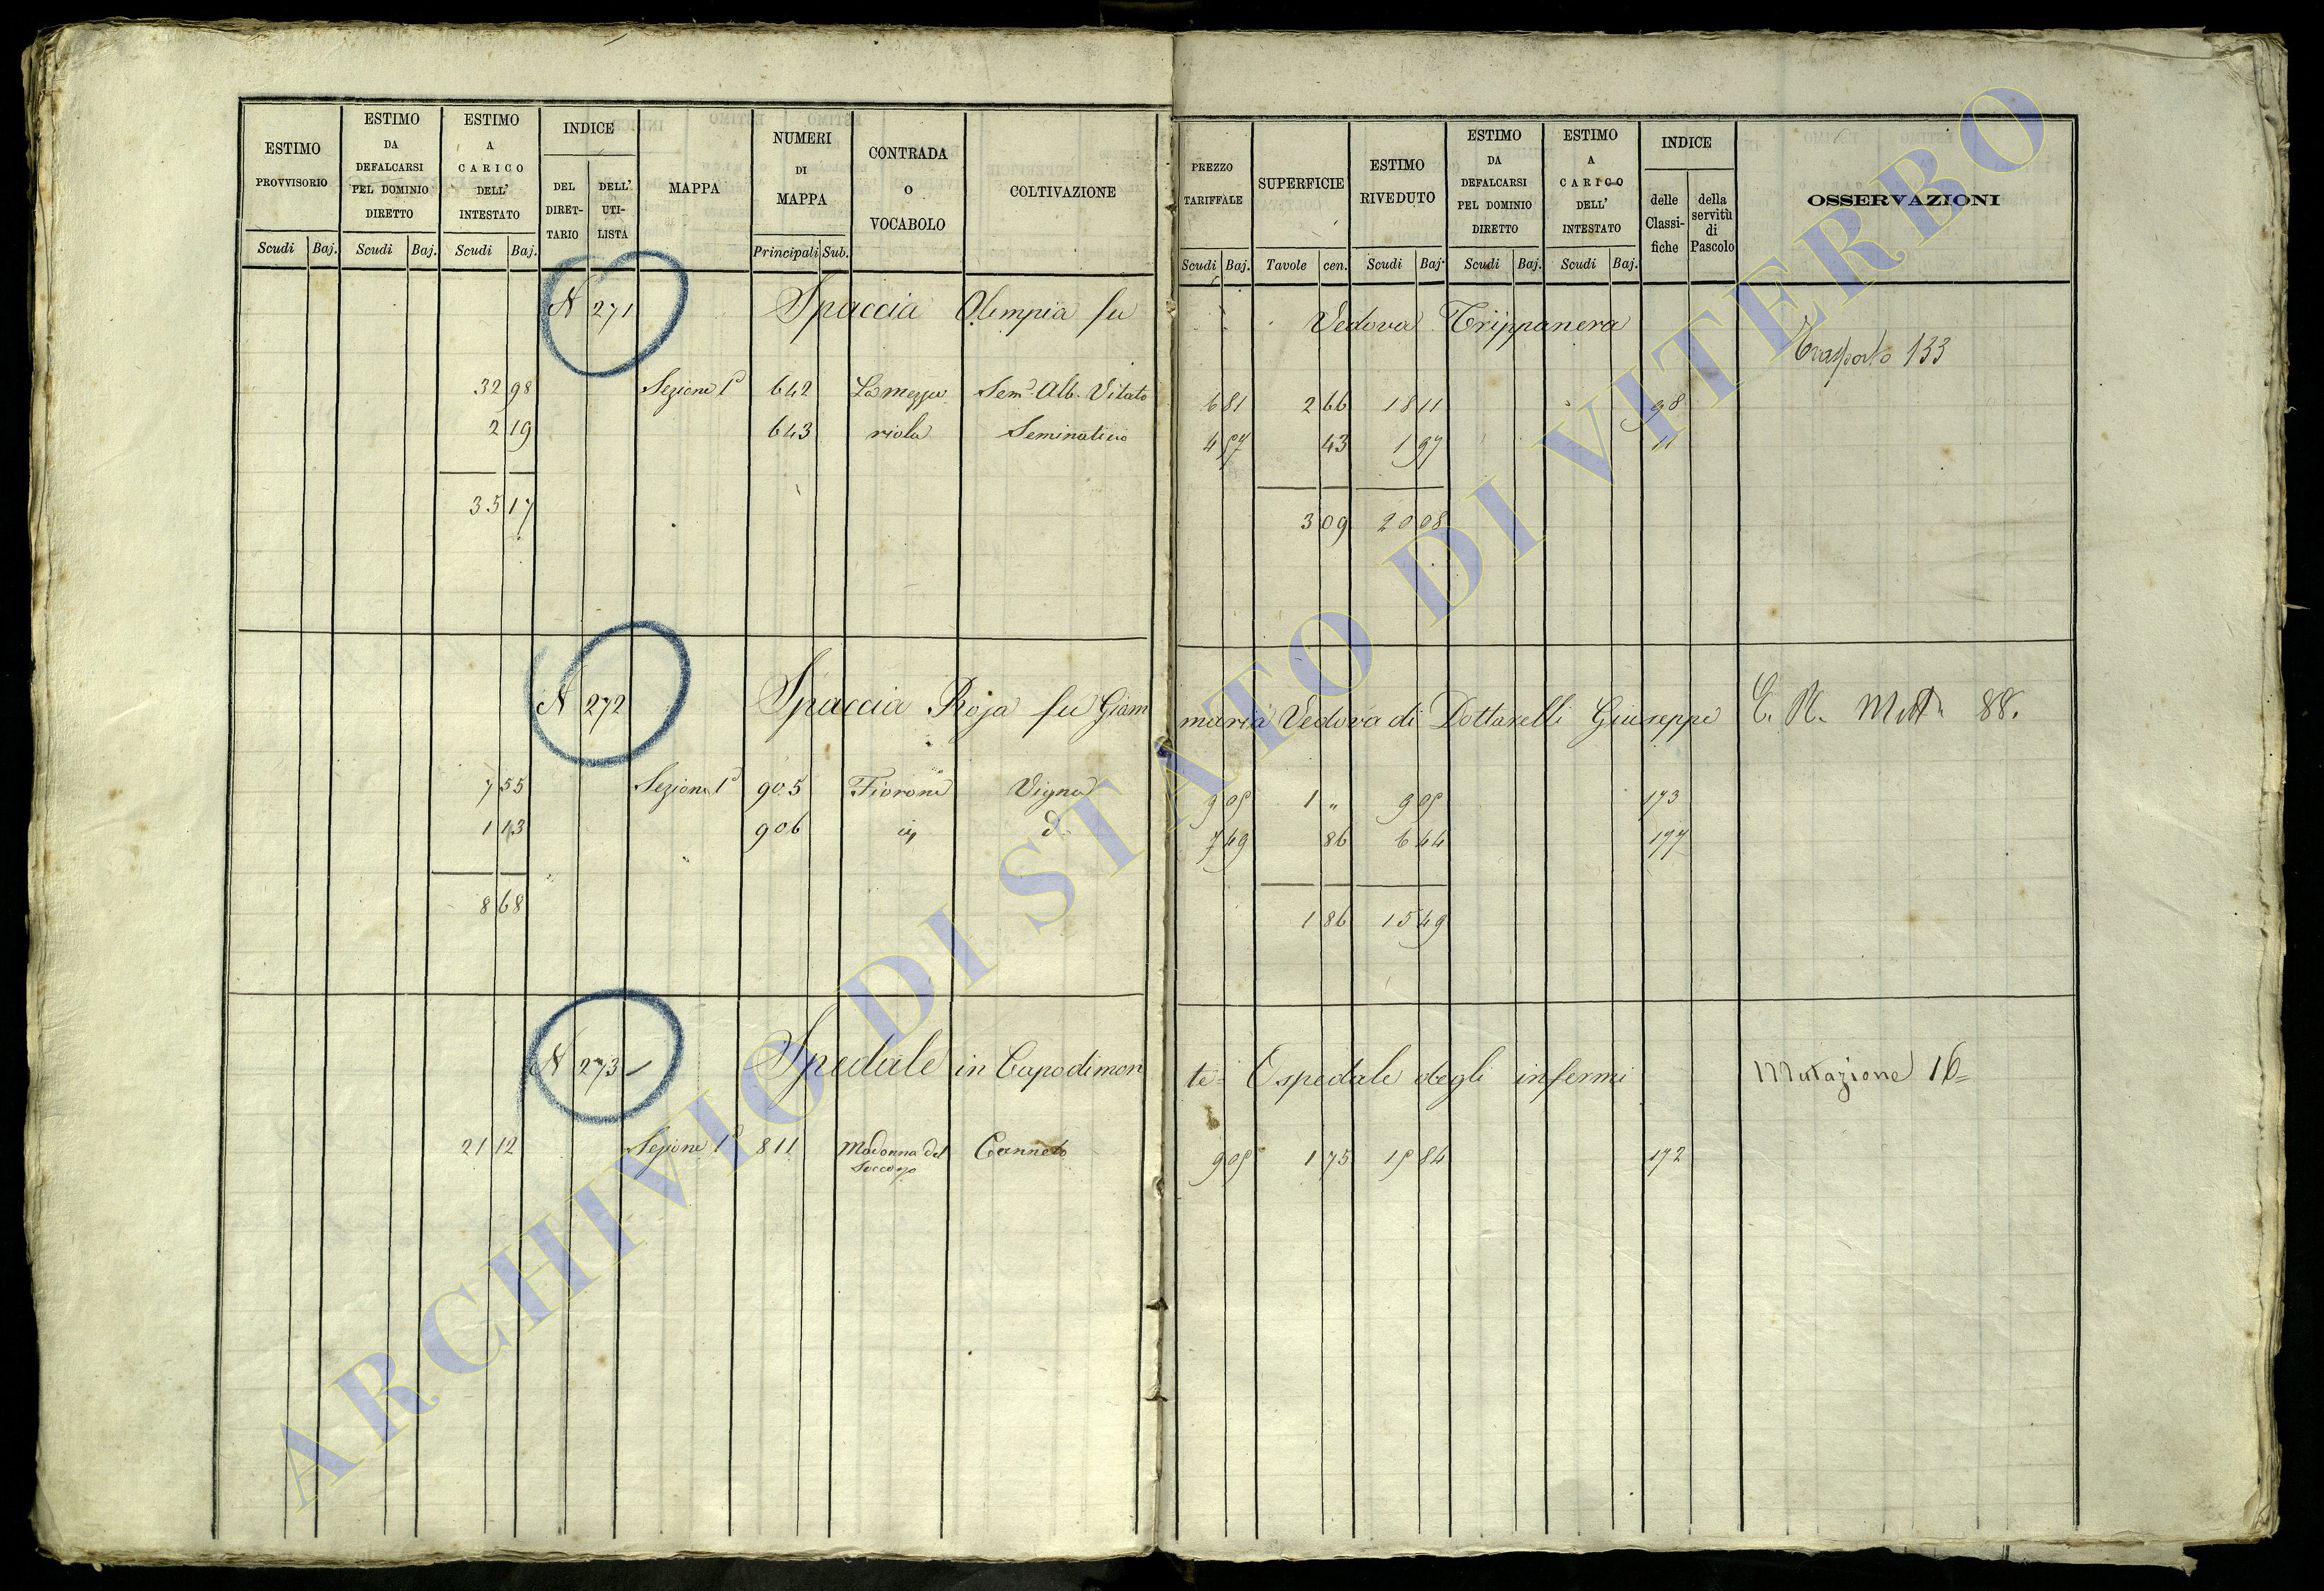 ESTIMO PROVVISORIO
ESTIMO DA DEFALCARSI PEL DOMINIO DIRETTO
ESTIMO A CARICO DELL' INTESTATO
INDICE
DEL DIRET-TARIO
DELL' UTI-LISTA
MAPPA
NUMERI DI MAPPA
CONTRADA O VOCABOLO
COLTIVAZIONE
Scudi Baj. Scudi Baj. Scudi Baj. Principali Sub.
PREZZO TARIFFALE
SUPERFICIE
ESTIMO RIVEDUTO
ESTIMO DA DEFALCARSI PEL DOMINIO DIRETTO
ESTIMO A CARICO DELL' INTESTATO
INDICE
delle Classi-fiche
della servitù di Pascolo
OSSERVAZIONI
Scudi Baj. Tavole cen. Scudi Baj. Scudi Baj. Scudi Baj.
N 271 Spaccia Olimpia fu Vedova Trippanera
Trasporto 133
32 98 Sezione 1ª 642 La mezza Sem. Alb. Vitato 6 81 2 66 18 11 98
2 19 643 riola Seminativo 4 57 43 1 97 11
35 17 3 09 20 08
N 272 Spaccia Roja fu Giam maria Vedova di Dottarelli Giuseppe 88.
7 55 Sezione 1ª 905 Fiorone Vigna 9 05 1 " 9 05 173
1 13 906 7 49 86 6 44 177
8 68 1 86 15 49
N 273 Spedale in Capodimon te = Ospedale degli infermi Mutazione 16=
21 12 Sezione 1ª 811 Madonna del Soccorso Canneto 9 05 1 75 15 84 172
ARCHIVIO DI STATO DI VITERBO